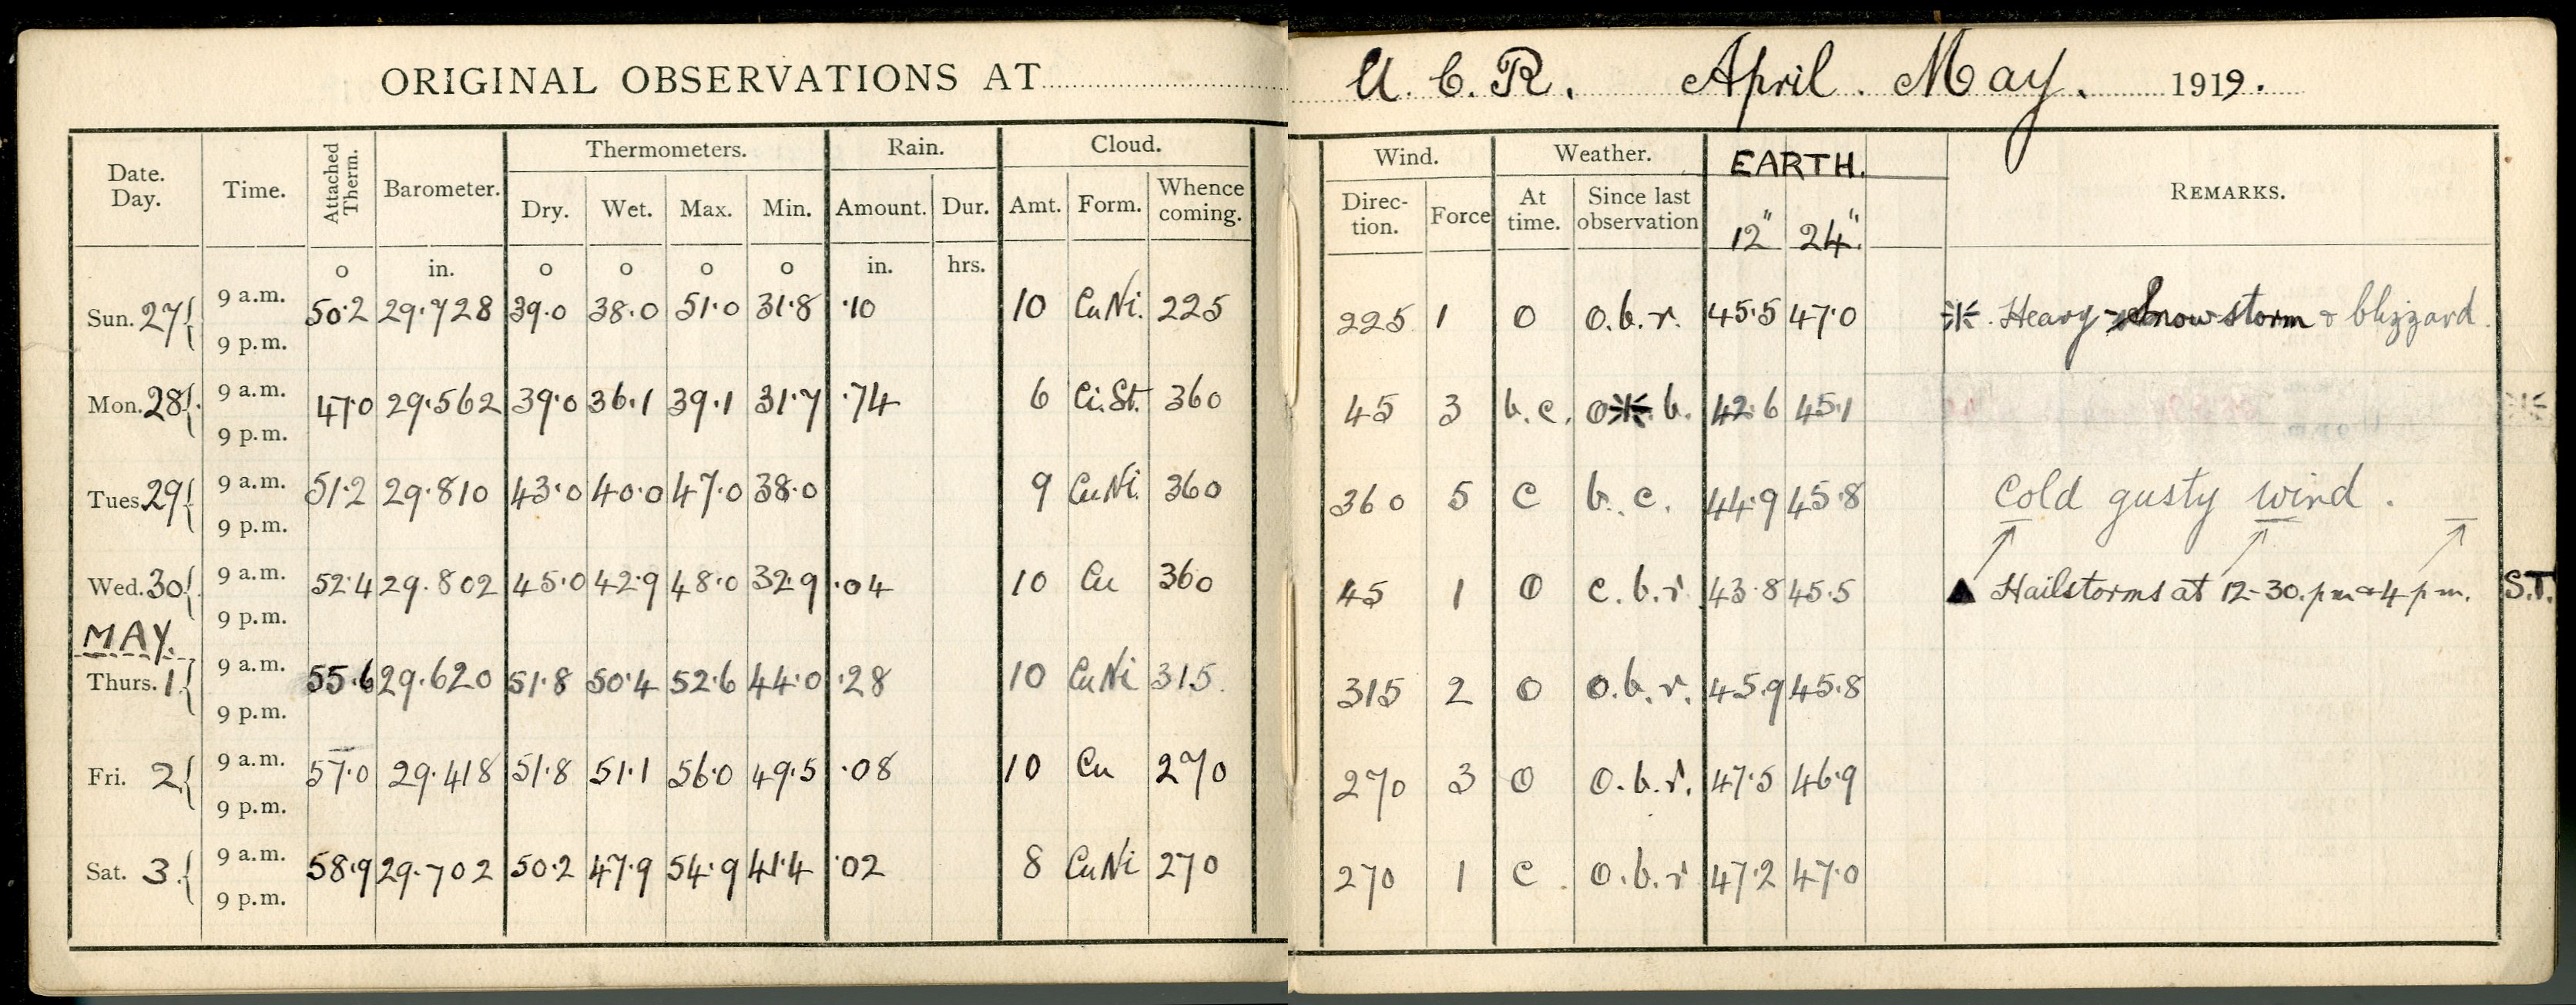 ORIGINAL OBSERVATIONS AT U. C. R. April. May. 1919.
Date. Day. Time. Attached Therm. Barometer. Thermometers. Rain. Cloud. Wind. Weather. EARTH. REMARKS.
Dry. Wet. Max. Min. Amount. Dur. Amt. Form. Whence coming. Direc- tion. Force At time. Since last observation 12" 24"
o in. o o o o in. hrs.
Sun. 27 9 a.m. 50.2 29.728 39.0 38.0 51.0 31.8 .10 10 CuNi. 225 225 1 O O.b.r. 45.5 47.0 Heavy Snow storm & blizzard.
9 p.m.
Mon. 28 9 a.m. 47.0 29.562 39.0 36.1 39.1 31.7 .74 6 Ci.St. 360 45 3 b.c. O b. 42.6 45.1
9 p.m.
Tues. 29 9 a.m. 51.2 29.810 43.0 40.0 47.0 38.0 9 CuNi. 360 360 5 C b.c. 44.9 45.8 Cold gusty wind.
9 p.m.
Wed. 30 9 a.m. 52.4 29.802 45.0 42.9 48.0 32.9 .04 10 Cu 360 45 1 O c.b.r. 43.8 45.5 ▲ Hailstorms at 12-30.pm & 4 pm. S.T.
9 p.m.
MAY.
Thurs. 1 9 a.m. 55.6 29.620 51.8 50.4 52.6 44.0 .28 10 CuNi 315. 315 2 O O.b.r. 45.9 45.8
9 p.m.
Fri. 2 9 a.m. 57.0 29.418 51.8 51.1 56.0 49.5 .08 10 Cu 270 270 3 O O.b.r. 47.5 46.9
9 p.m.
Sat. 3 9 a.m. 58.9 29.702 50.2 47.9 54.9 41.4 .02 8 CuNi 270 270 1 C. O.b.r 47.2 47.0
9 p.m.